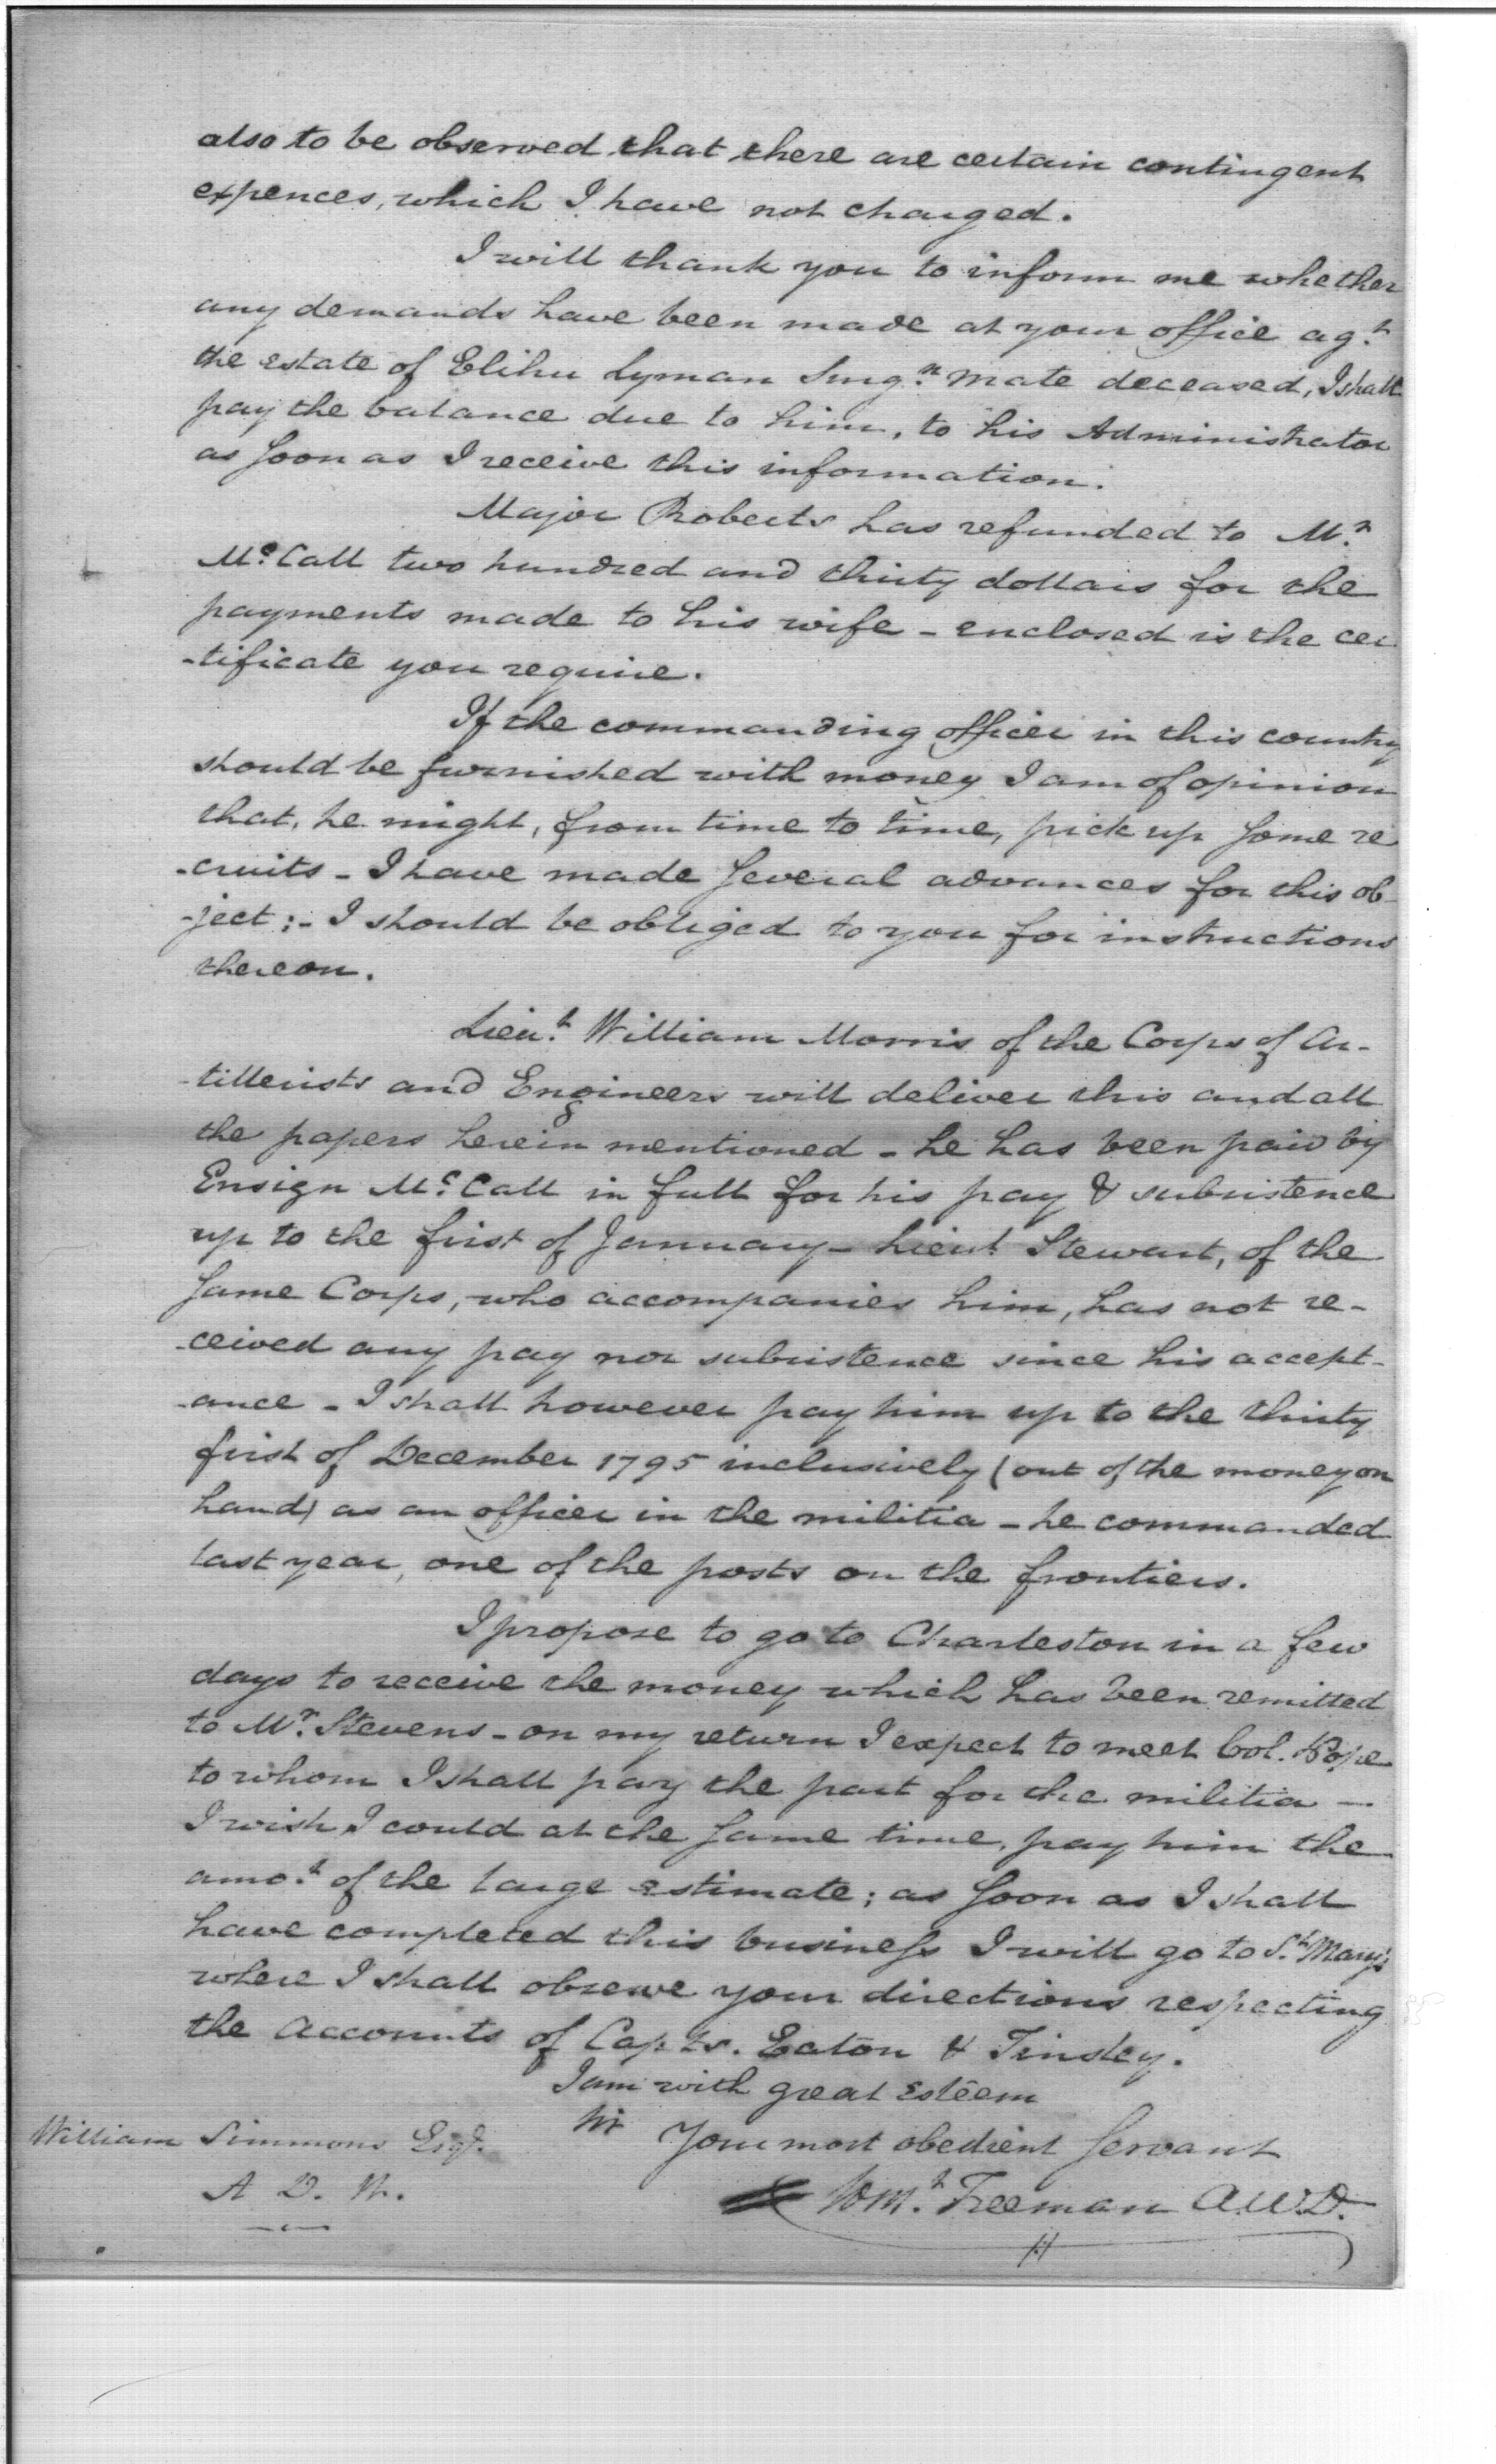 also to be observed that there are certain contingent
expences, which I have not charged.
I will thank you to inform me whether
any demands have been made at your office agt.
the estate of Elihu Lyman Surgn. Mate deceased, I shall
pay the balance due to him, to his Administrator
as soon as I receive this information.
Major Roberts has refunded to Mr.
McCall two hundred and thirty dollars for the
payments made to his wife - enclosed is the cer
-tificate you require.
If the commanding officer in this country
should be furnished with money I am of opinion
that, he might, from time to time, pick up some re
-cruits - I have made several advances for this ob-
-ject; - I should be obliged to you for instructions
thereon.
Lieut. William Morris of the Corps of Ar-
-tillerists and Engineers will deliver this and all
the papers herein mentioned - he has been paid by
Ensign McCall in full for his pay & subsistence
up to the first of January - Lieut. Stewart, of the
same Corps, who accompanies him, has not re-
-ceived any pay nor subsistence since his accept-
-ance - I shall however pay him up to the thirty
first of December 1795 inclusively (out of the money on
hand) as an officer in the militia - he commanded
last year, one of the posts on the frontiers.
I propose to go to Charleston in a few
days to receive the money which has been remitted
to Mr. Stevens - on my return I expect to meet Col. Pope
to whom I shall pay the part for the militia -
I wish I could at the same time, pay him the
amot. of the large estimate; as soon as I shall
have completed this business I will go to St. Marys
where I shall observe your directions respecting
the accounts of Capts. Eaton & Tinsley.
I am with great esteem
Sir Your most obedient servant
Cont. Freeman A.W.D.
William Simmons Esqr.
A D. W.